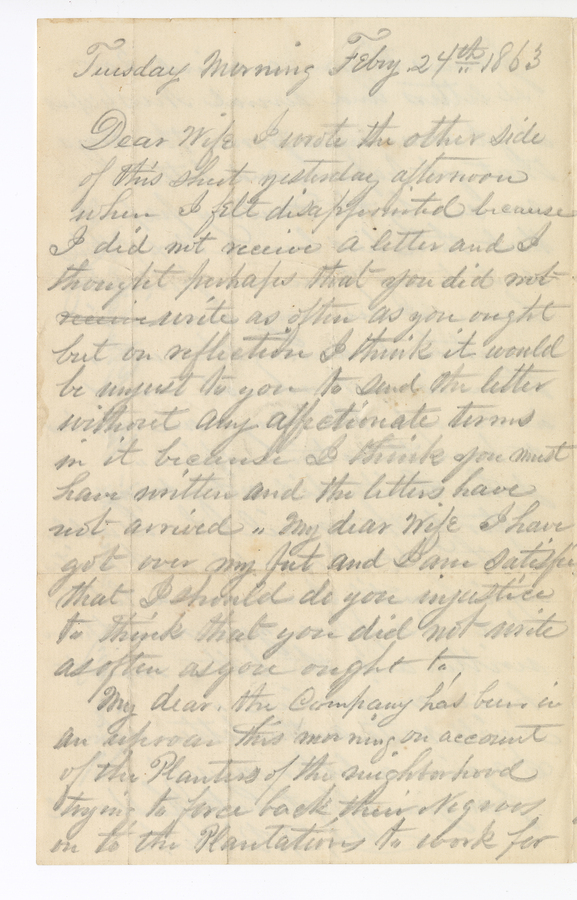 Tuesday Morning Febry. 24th 1863
Dear Wife I wrote the other side
of this sheet yesterday afternoon
when I felt disappointed because
I did not receive a letter and I
thought perhaps that you did not
receive write as often as you ought
but on reflection I think it would
be unjust to you to send the letter
without any affectionate terms
in it because I think you must
have written and the letters have
not arrived " My dear Wife I have
got over my fret and I am satisfie
that I should do you injustice
to think that you did not write
as often as you ought to,
My dear. the Company has been in
an uproar this morning on account
of the Planters of the neighborhood
trying to force back their Negroes
on to the Plantations to work for